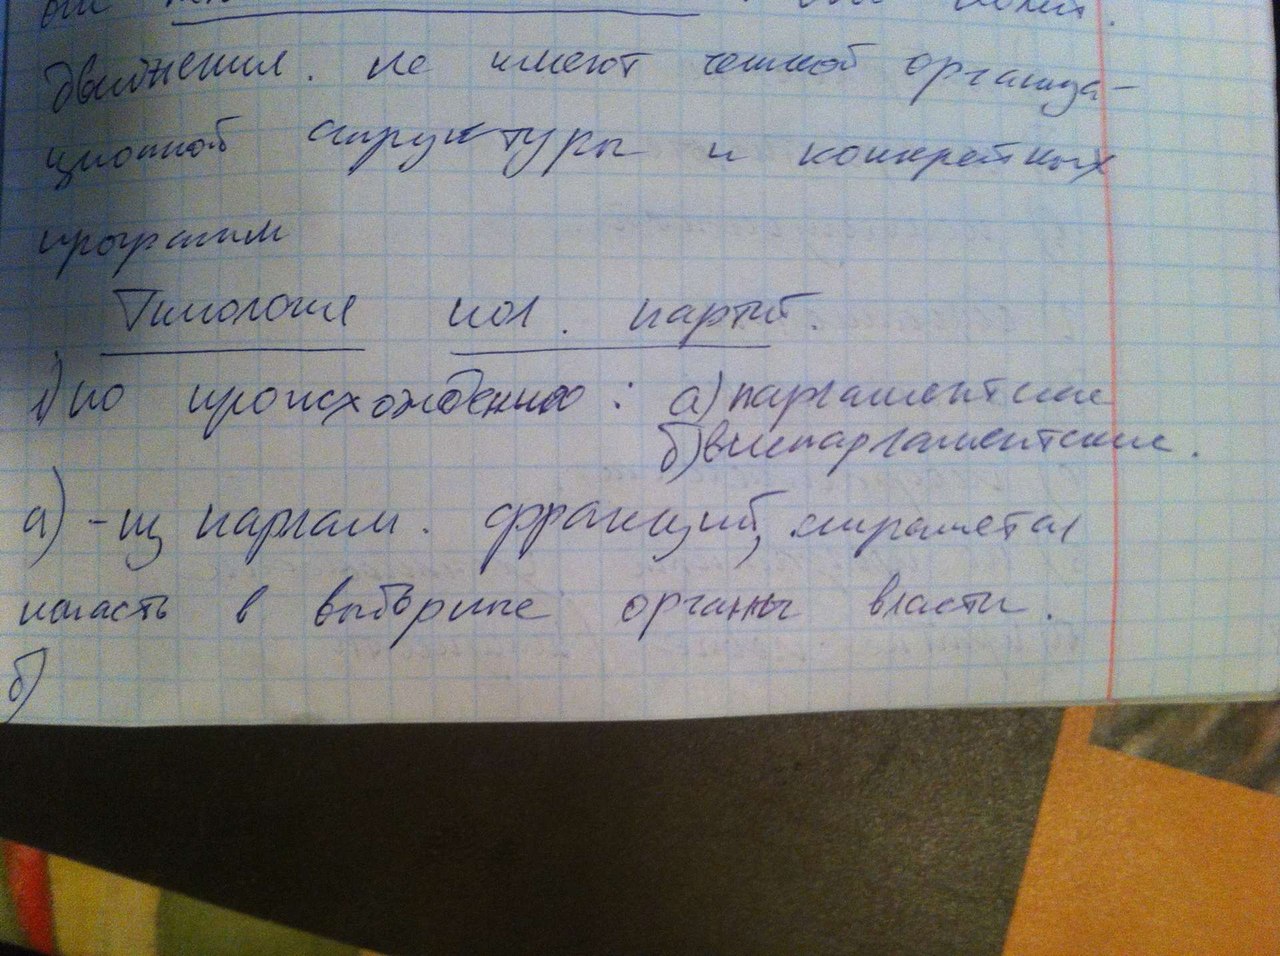 движения. не имеют четкой организа-
ционной структуры и конкретных
программ
Типология пол. партий.
1) по происхождению: а) парламентские
б) внепарламентские.
а) - из парлам. фракций, стремятся
попасть в выборные органы власти.
б)